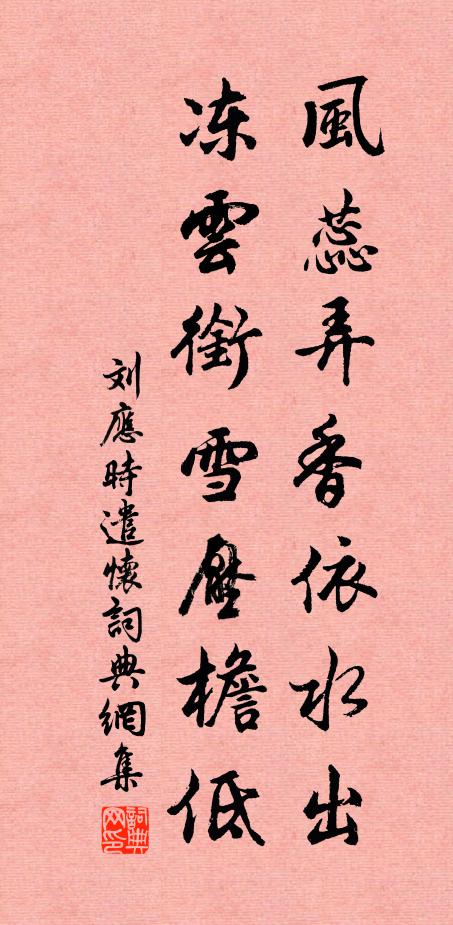 風蕊弄香依水出
冻雲銜雪壓檐低
刘應時遣懷詞典網集
詞典网印